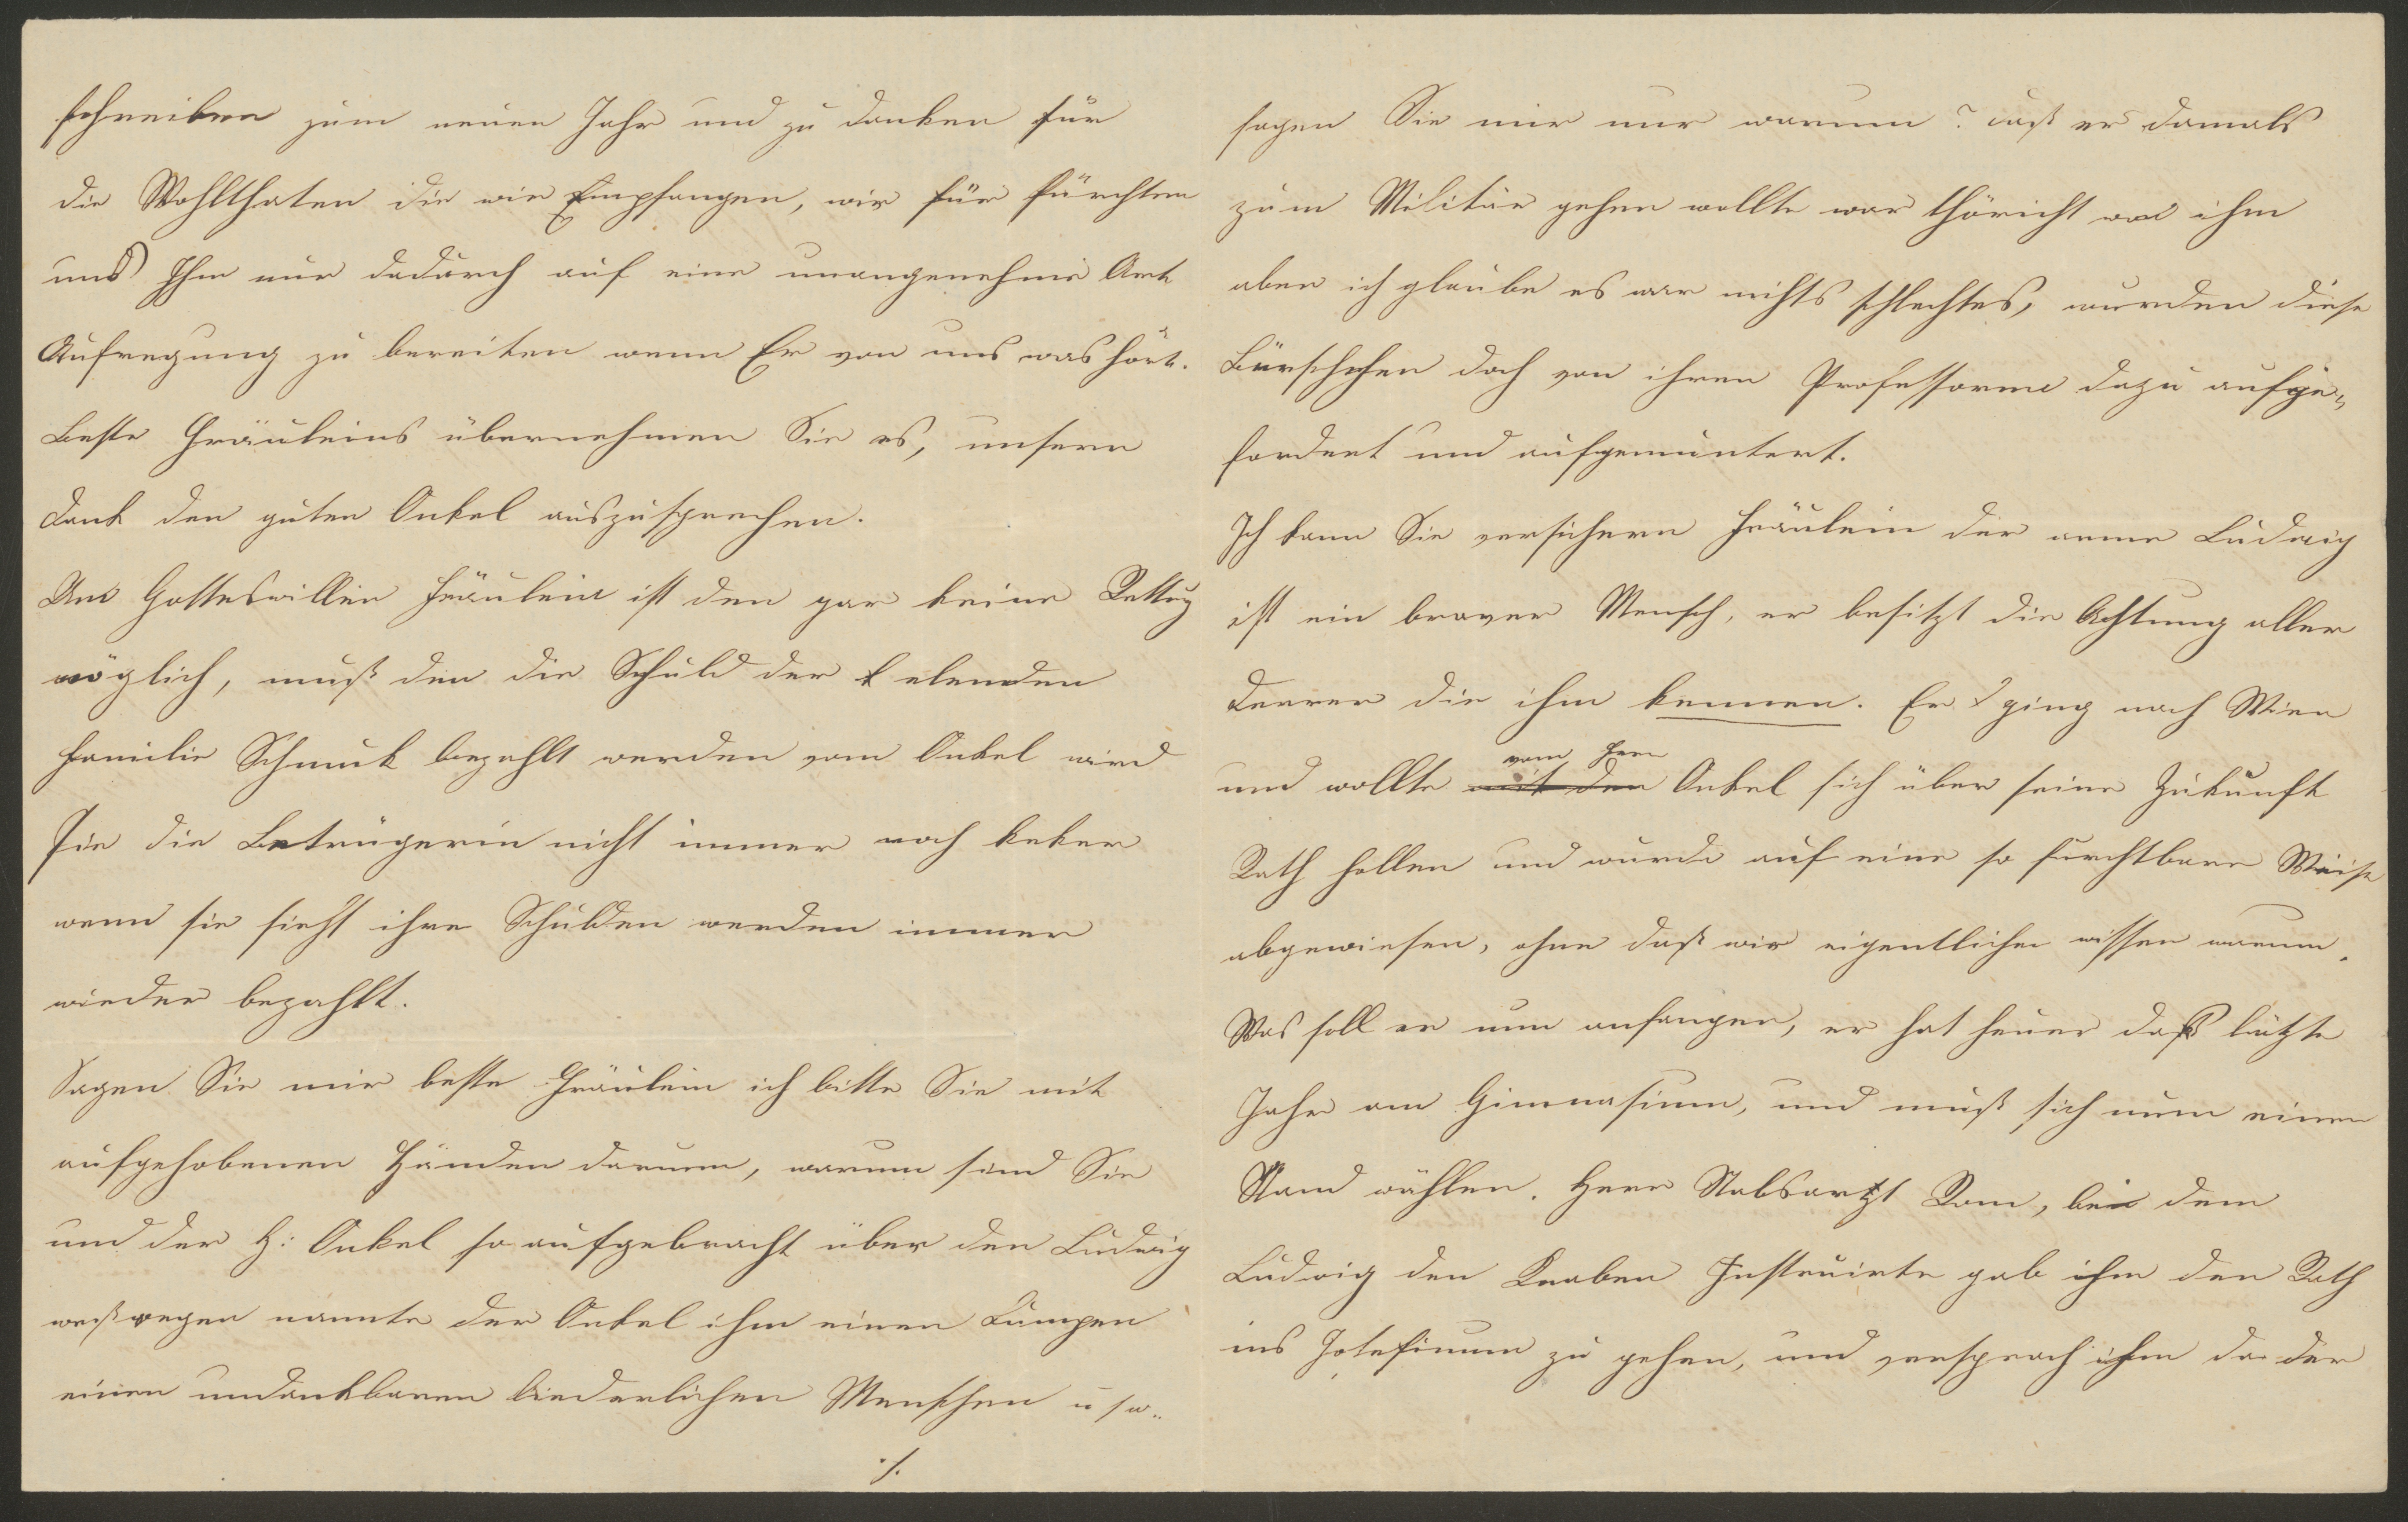 schreiben zum neuen Jahr und zu danken für
die Wohlthaten die wir Empfangen, wir für fürchten
uns Ihm nur dadurch auf eine unangenehme Art
Aufregung zu bereiten wenn Er von uns was hört.
Beste Fräuleins übernehmen Sie es, unsern
Dank den guten Onkel auszusprechen.
Um Gotteswillen Fräulein ist den gar keine Rettug
möglich, muß den die Schuld der elenden
Familie Schmuk bezahlt werden vom Onkel wird
Sie die Betrügerin nicht immer noch keker
wenn sie sieht ihre Schulden werden immer
wieder bezahlt.
Sagen Sie mir beste Fräulein ich bitte Sie mit
aufgehobenen Händen darum, warum sind Sie
und der H: Onkel so aufgebracht über den Ludwig
weßwegen nannte der Onkel ihm einen Lumpen
einen undankbaren liederlichen Menschen u s w.
./.
sagen Sie mir nur warum? daß er damals
zum Militär gehen wollte war thöricht von ihm
aber ich glaube es war nichts schlechtes, wurden diese
Bürschchen doch von ihren Professoren dazu aufge-
fordert und aufgemuntert.
Ich kann Sie versichern Fräulein der arme Ludwig
ist ein braver Mensch, er besitzt die Achtung aller
Derrer die ihm kennen. Er ging nach Wien
und wollte mit den vom Herrn Onkel sich über seine Zukunft
Rath hollen und wurde auf eine so furchtbare Weise
abgewiesen, ohne daß wir eigentlichen wissen warum.
Was soll er nun anfangen, er hat heuer daß lätzte
Jahr am Gimnasium, und muß sich nun einen
Stand wählen. Herr Stabsartzt Rom, bei dem
Ludwig den Knaben Instruirte gab ihm den Rath
ins Josefinum zu gehen, und versprach ihm da der